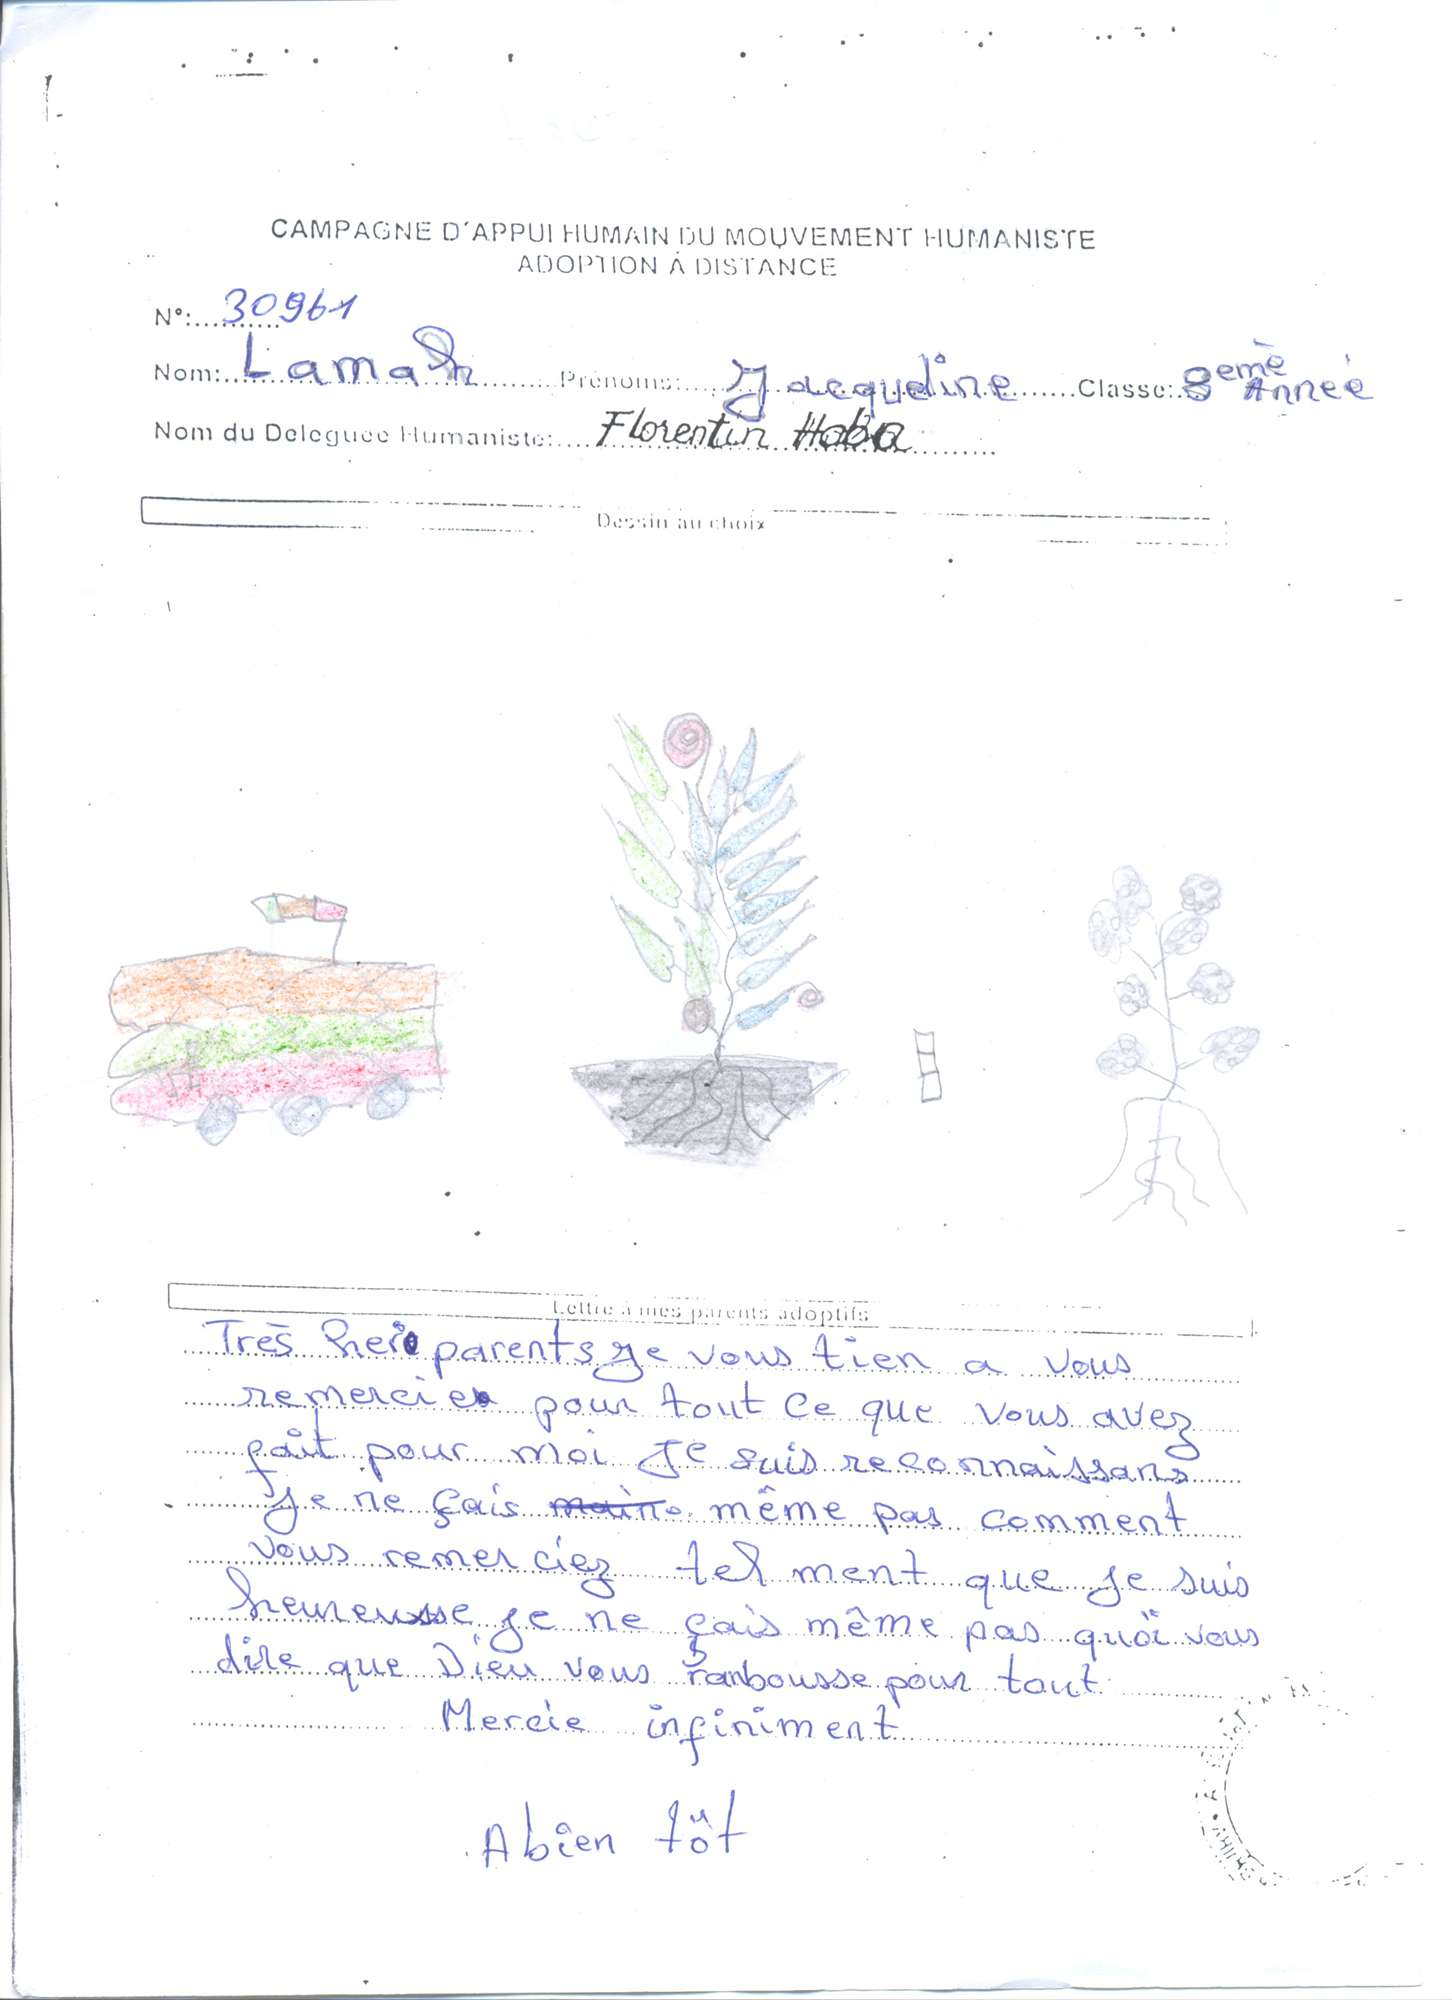 CAMPAGNE D'APPUI HUMAIN DU MOUVEMENT HUMANISTE
ADOPTION À DISTANCE
N°: 30961
Nom: Lamah Prénoms: Jacqueline Classe: 8emè Anneé
Nom du Deleguee Humaniste: Florentin Haba
Dessin au choix
Lettre a mes parents adoptifs
Très parents je vous tien a vous
remercier pour tout ce que vous avez
fait pour moi Je suis reconnaissans
Je ne çais même pas comment
vous remerciez tel ment que je suis
heureuse je ne çais même pas quoi vous
dire que Dieu vous rambousse pour tout
Mercie infiniment
A bien tôt